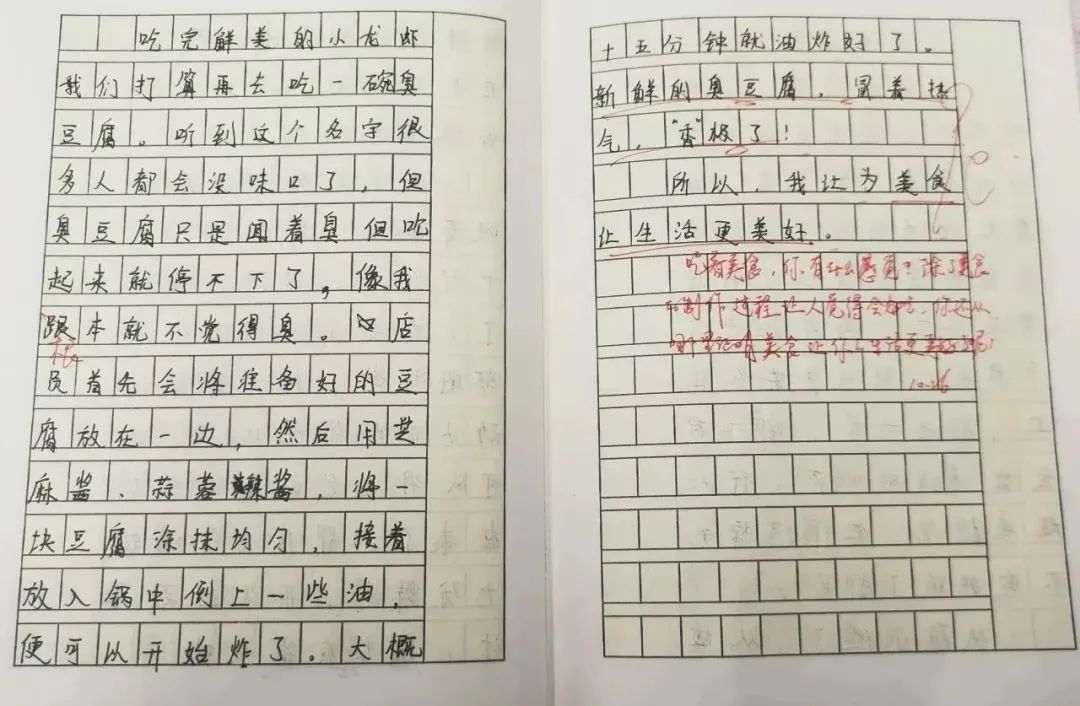 吃完鲜美的小龙虾
我们打算再去吃一碗臭
豆腐。听到这个名字很
多人都会没味口了,但
臭豆腐只是闻着臭但吃
起来就停不下了,像我
跟本就不觉得臭。店
根
员首先会将准备好的豆
腐放在一边,然后用芝
麻酱、蒜蓉辣酱,将一
块豆腐涂抹均匀,接着
放入锅中倒上一些油,
便可以开始炸了。大概
十五分钟就油炸好了。
新鲜的臭豆腐,冒着热
气,“香”极了!
所以,我让为美食
让生活更美好。
吃着美食,你有什么感觉?除了美食
的制作过程让人觉得会好吃,你还从
哪里证明美食让你的生活更美好了呢?
10.26